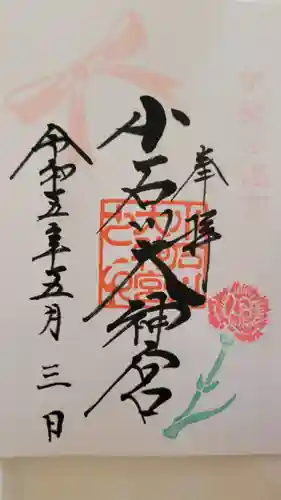 奉拝
小石川大神宮
令和五年五月三日